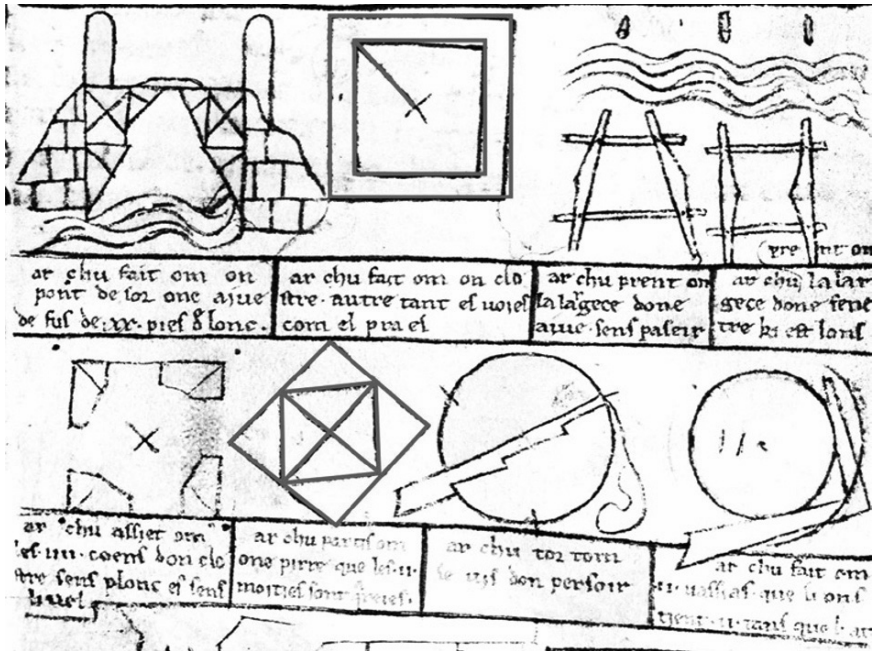 prent on
ar chu fait om on
pont de sor one aiue
de fus de .xx. pies d lonc.
ar chu fait om on clo
stre. autre tant es uoies
com el prael
ar chu prent on
la largece done
aiue. sens paseir
ar chu la lar
gece done fene
tre ki est lons
ar chu assiet om
les .iiii. coens don clo
stre sens plonc et sens
liuel
ar chu partis om
one pirre que les .ii.
moities sont
ar chu tor tom
le uis don persoir
ar chu fait om
.ii. uassias. que li ons
tient .ii. tans que